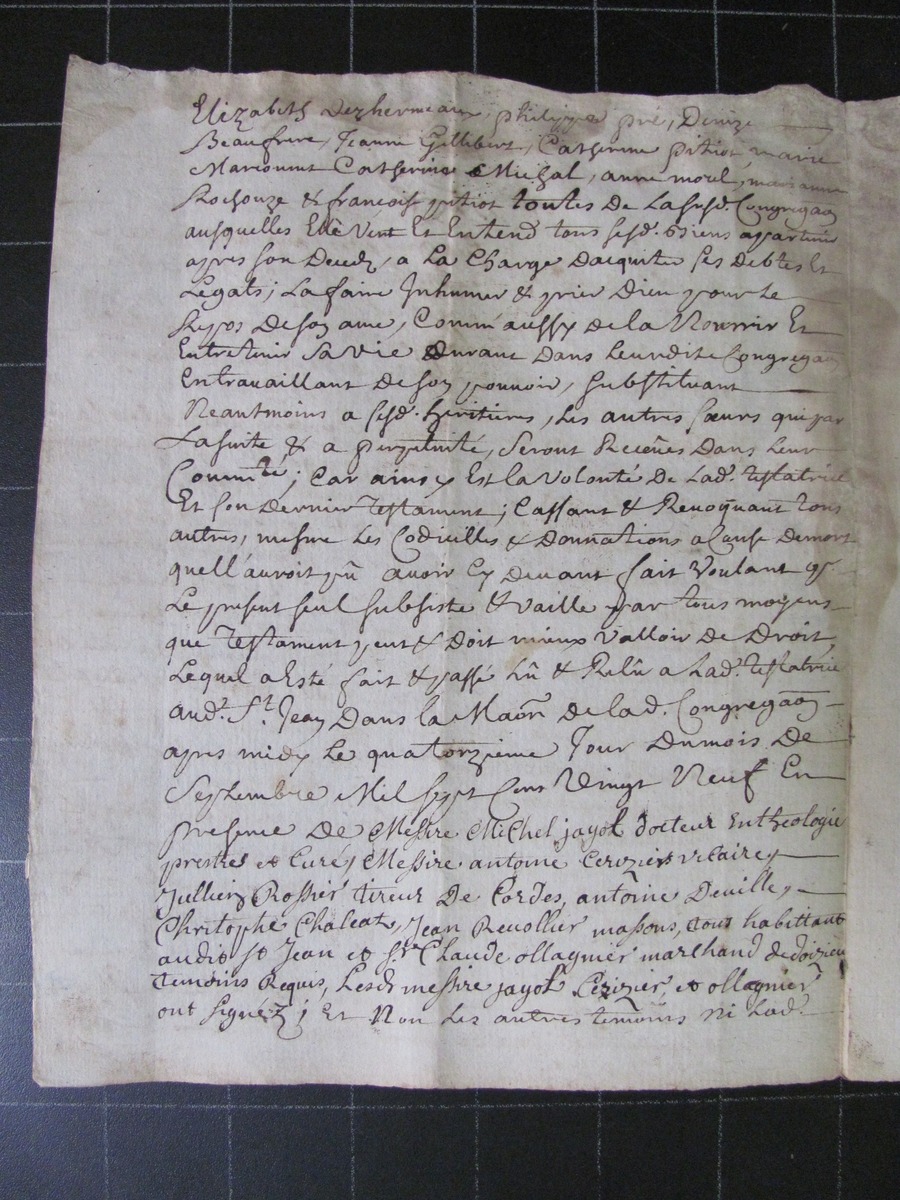 Elizabeth Dezhermeaux, philippa pré, Denize
Beaufrere, Jeanne Gillibert, Catherine pitiot, marie
Marcounn Catherine Michal, anne morel, marianne
Rochouze & françoise pitiot toutes De La susd. Congrega͠on
ausquelles Elle Veut Et Entend tous sesd. Biens appartenir
apres son Deceds, a La Charge Dacquiter ses Debtes Et
Legats; La faire Inhumer & prier Dieu pour Le
Repos De soy ame, Comm'aussy de la Nourrir Et
Entretenir sa vie Durant Dans Leurdite Congrega͠on
En travaillant De soy pouvoir, substituant
Neantmoins a sesd. heritieres, Les autres sœurs qui par
La suite & a perpetuité, seront Receües Dans Leur
Commte; Car ainsy Est la Volonté de Lad. testatrice
Et son Dernier testament; Cassant & Revoquant tous
autres, mesme Les Codicilles & Donnations a Cause Demort
quell'auroit pû avoir Cy Devant fait Voulant q.
Le present seul subsiste & Vaille par tous moyens
que testament peut & Doit mieux Valloir De Droit,
Lequel a Esté fait & passé Lû & Relû a Lad. testatrice
aud. St. Jean Dans la Maion de lad. Congrega͠on
apres midy Le quatorzieme Jour Dumois De
Septembre Mil sept Cens Vingt Neuf En
presence De Messire Michel jayol docteur En theologie
prestre et Curé, Messire antoine Cerizier vicaire,
Jullien Rossier tireur De Cordes, antoine Deville,
Christophe Chaleat, Jean Revollier massons, tous habittant
audit st Jean et sr. Claude ollagnier marchand de doizieu
temoins Requis, Lesd. messire jayol Cerizier, et ollagnier
ont signéz; Et Non Les autres temoins ni Lad.